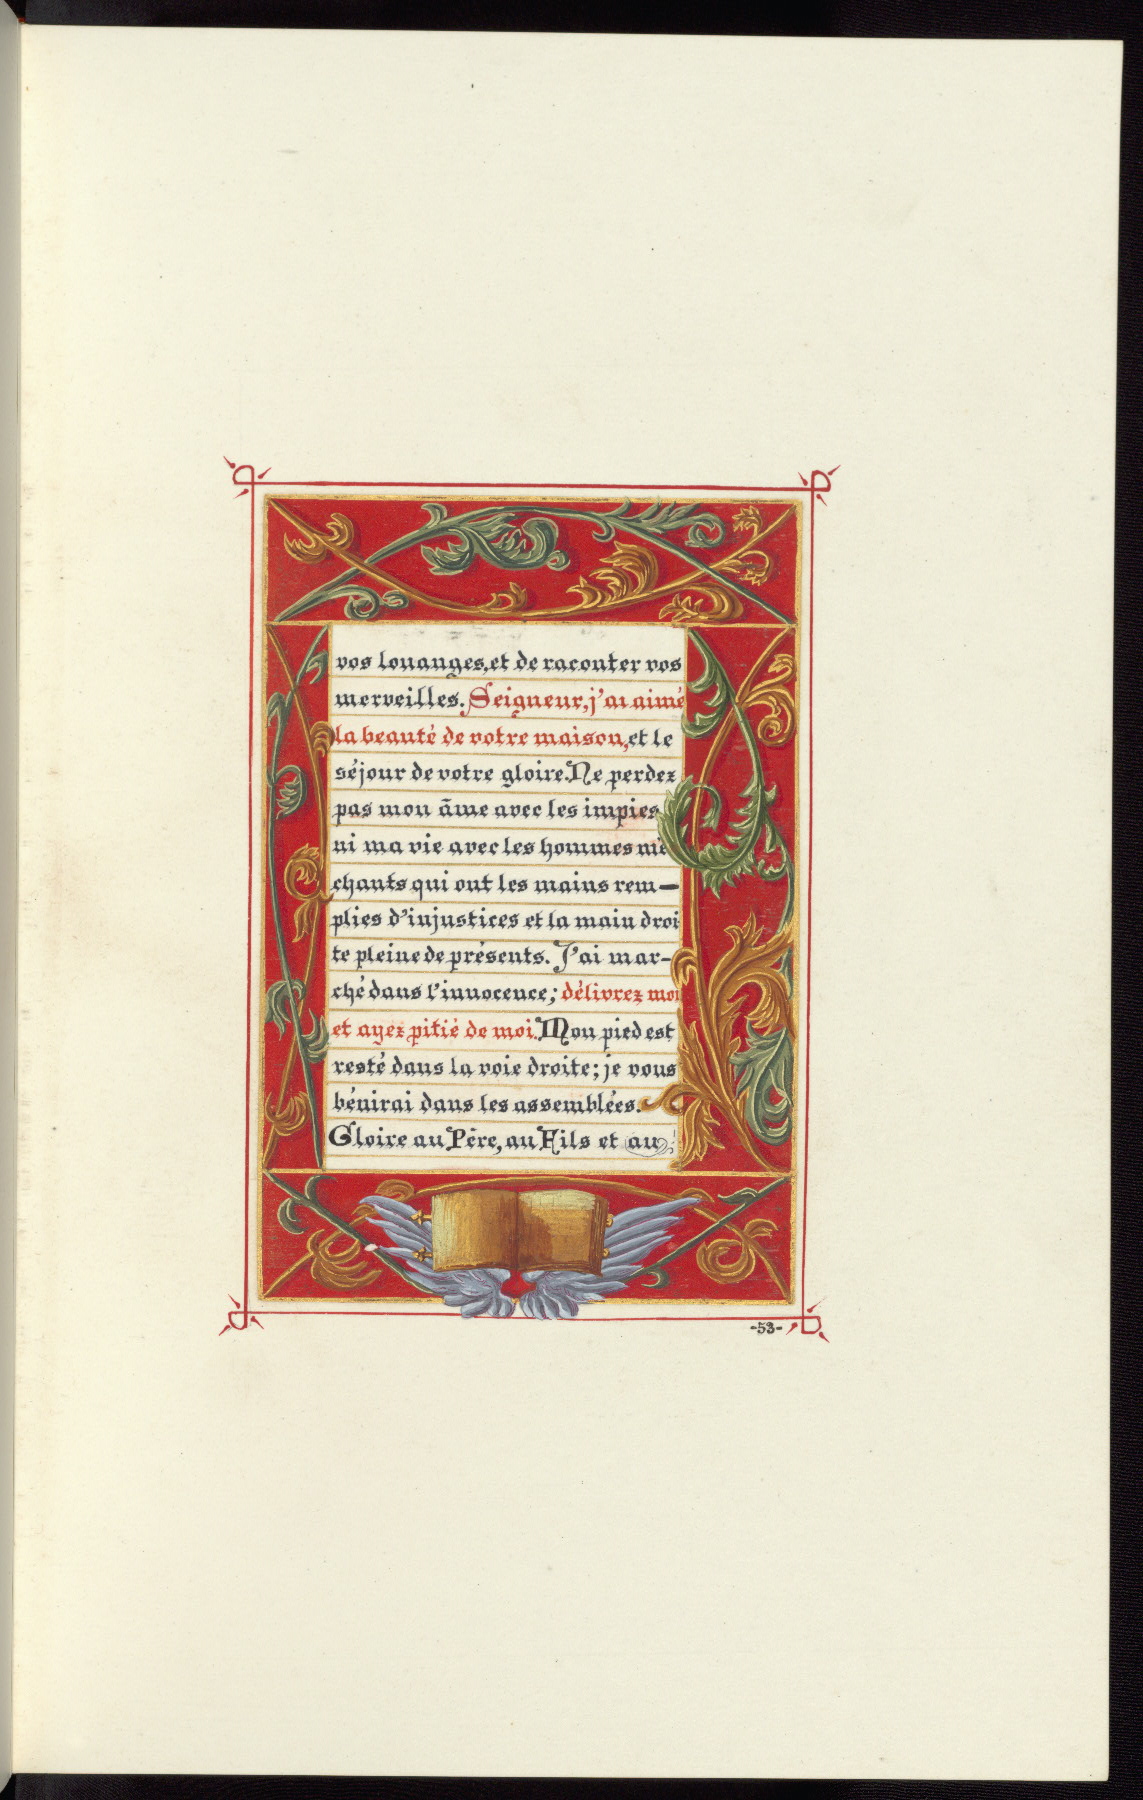 vos louanges, et de raconter vos
merveilles. Seigneur, j'ai aimé
la beauté de votre maison, et le
séjour de votre gloire. Ne perdez
pas mon âme avec les impies
ni ma vie avec les hommes mé
chants qui ont les mains rem-
plies d'injustices et la main droi
te pleine de présents. J'ai mar-
ché dans l'innocence; délivrez moi
et ayez pitié de moi. Mon pied est
resté dans la voie droite; je vous
bénirai dans les assemblées.
Gloire au Père, au Fils et au
-53-